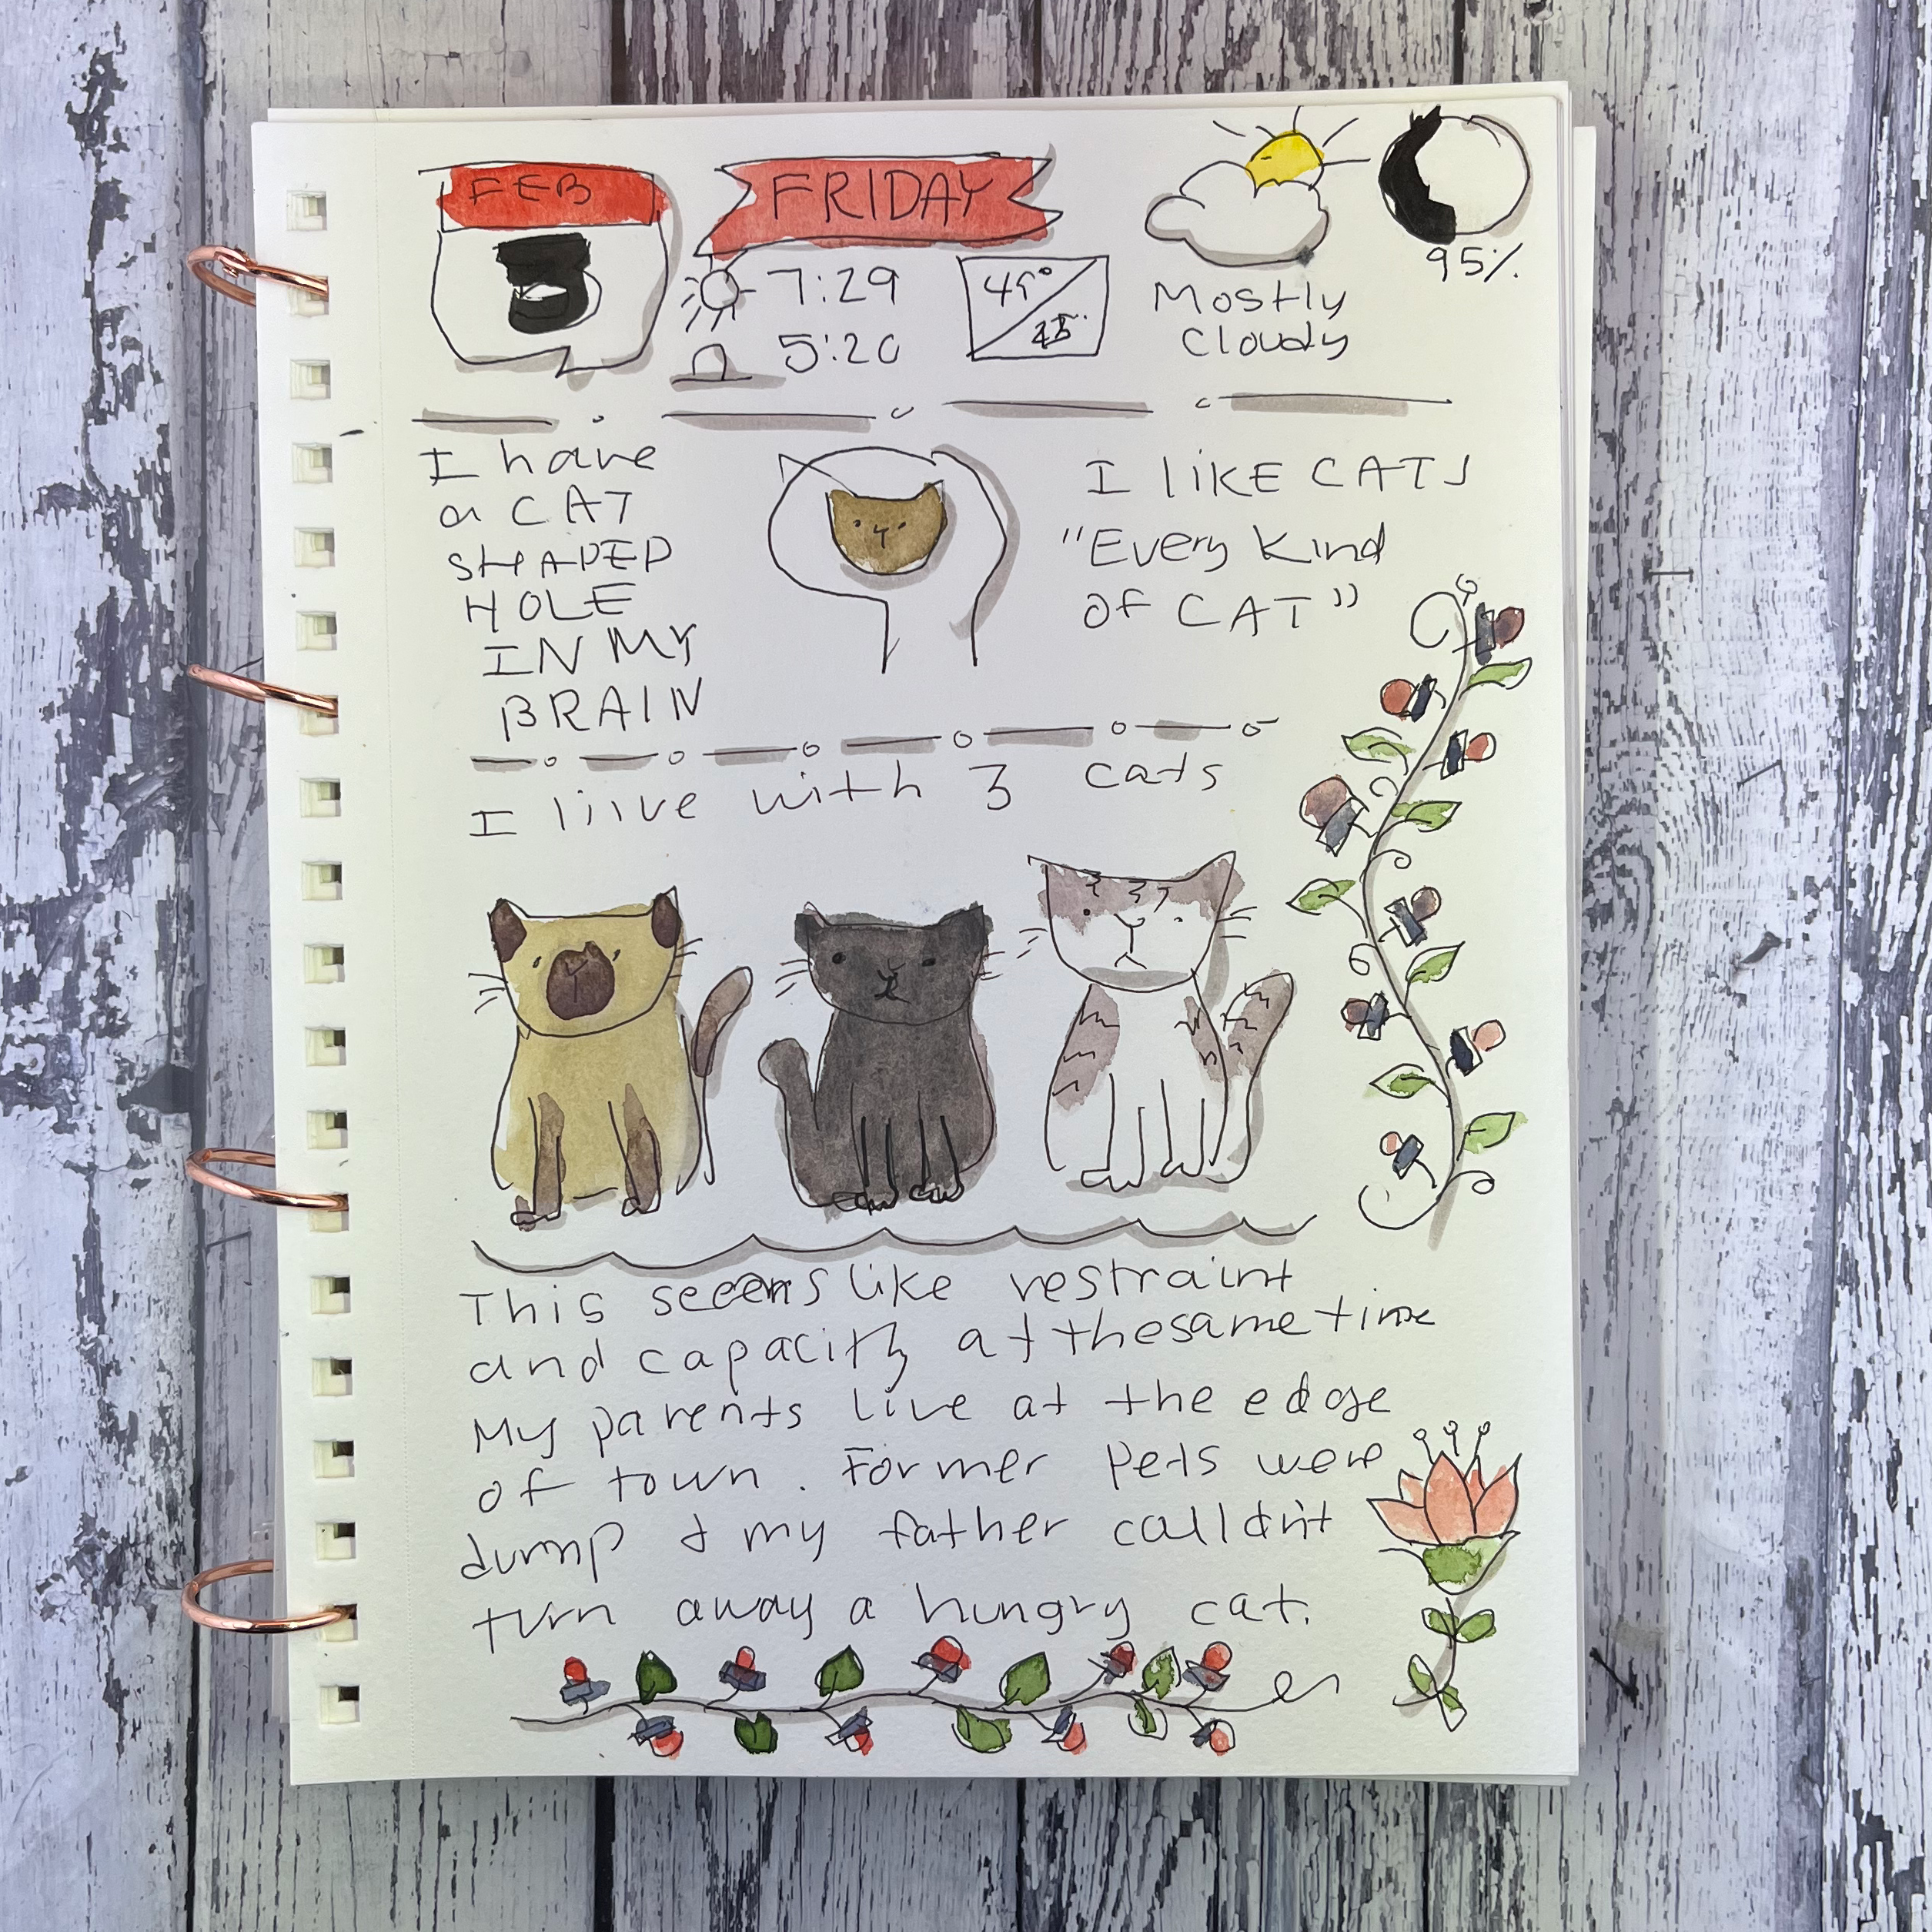 FEB
FRIDAY
7:29
5:20
45°
Mostly
Cloudy
95%
I have
a CAT
SHAPED
HOLE
IN MY
BRAIN
I liKE CATS
"Every Kind
of CAT"
I liive with 3 cats
This seeems like restraint
and capacity at the same time
My parents live at the edge
of town. Former pets were
dump & my father calldn't
turn away a hungry cat.